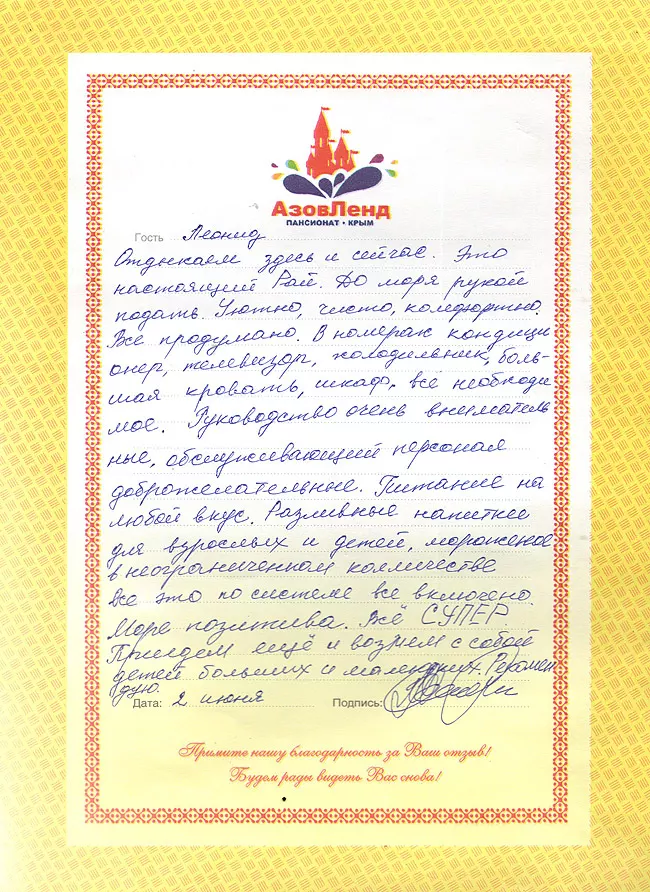 АзовЛенд
ПАНСИОНАТ • КРЫМ
Гость Леонид
Отдыхаем здесь и сейчас. Это
настоящий Рай. До моря рукой
подать. Уютно, чисто, комфортно.
Все продумано. В номерах кондици
онер, телевизор, холодильник, боль-
шая кровать, шкаф, всё необходи
мое. Руководство очень вниматель
ные, обслуживающий персонал
доброжелательные. Питание на
любой вкус. Разливные напитки
для взрослых и детей, мороженое
в неограниченном колличестве
Все это по системе все включено.
Море позитива. Всё СУПЕР.
Приедем ещё и возмем с собой
детей больших и маленьких. Рекомен
дую.
Дата: 2 июня Подпись:
Примите нашу благодарность за Ваш отзыв!
Будем рады видеть Вас снова!